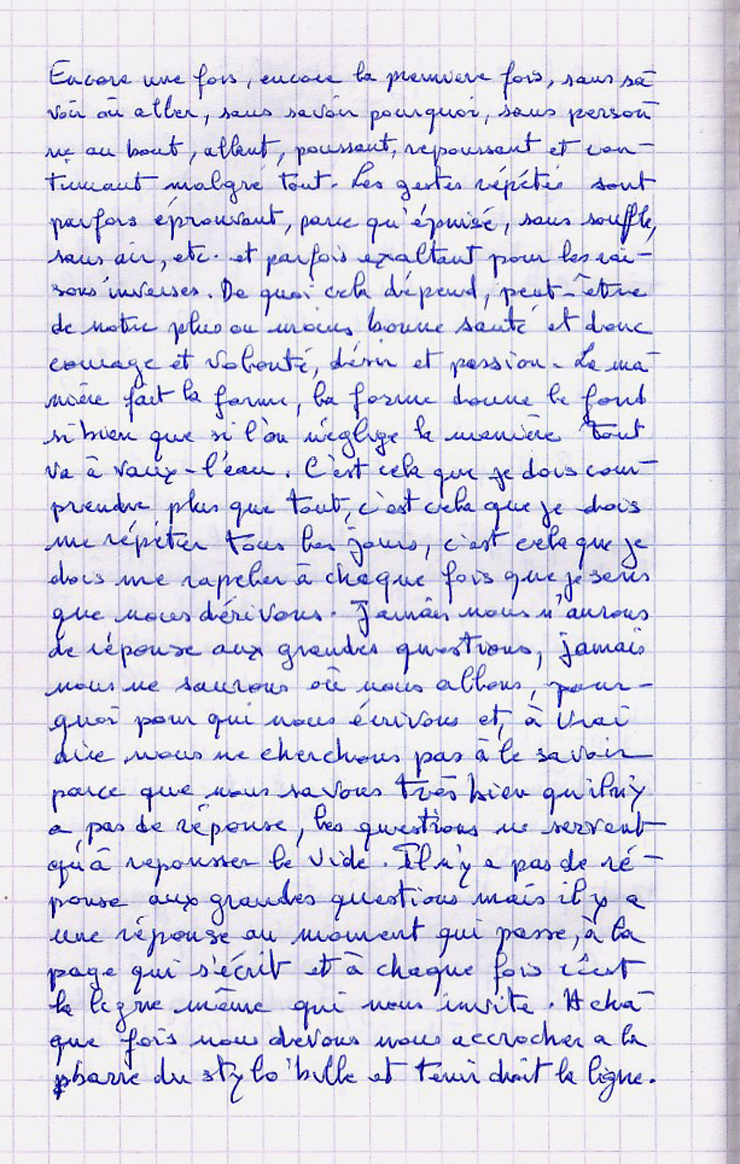 Encore une fois, encore la première fois, sans sa-
voir où aller, sans savoir pourquoi, sans person-
ne au bout, allant, poussant, repoussant et con-
tinuant malgré tout. Les gestes répétés sont
parfois éprouvant, parce qu'épuisé, sans souffle,
sans air, etc. et parfois exaltant pour les rai-
sons inverses. De quoi cela dépend, peut-être
de notre plus ou moins bonne santé et donc
courage et volonté, désir et passion. La ma-
nière fait la forme, la forme donne le fond
si bien que si l'on néglige la manière tout
va à vaux-l'eau. C'est cela que je dois com-
prendre plus que tout, c'est cela que je dois
me répéter tous les jours, c'est cela que je
dois me rapeler à chaque fois que je sens
que nous dérivons. Jamais nous n'aurons
de réponse aux grandes questions, jamais
nous ne saurons où nous allons, pour-
quoi pour qui nous écrivons et, à vrai
dire nous ne cherchons pas à le savoir
parce que nous savons très bien qu'il n'y
a pas de réponse, les questions ne servent
qu'à repousser le vide. Il n'y a pas de ré-
ponse aux grandes questions mais il y a
une réponse au moment qui passe, à la
page qui s'écrit et à chaque fois c'est
la ligne même qui nous invite. A cha-
que fois nous devons nous accrocher a la
barre du stylo bille et tenir droit la ligne.